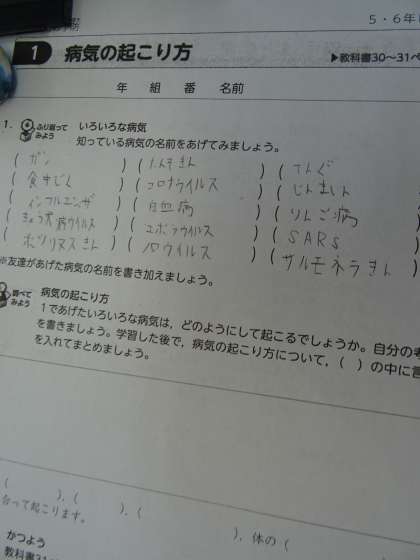 防
5・6年
1 病気の起こり方
▶教科書30〜31ペ
年 組 番 名前
1. ふり返ってみよう いろいろな病気
知っている病気の名前をあげてみましょう。
( ガン ) ( ) ( てんぐ
( 食中どく ) ( コロナウイルス ) ( じんましん
( インフルエンザ ) ( 白血病 ) ( りんご病 )
( きょう犬病ウイルス ) ( エボラウイルス ) ( SARS )
( ボツリヌスきん ) ( ノロウイルス ) ( サルモネラきん )
※友達があげた病気の名前を書き加えましょう。
調べてみよう 病気の起こり方
1であげたいろいろな病気は,どのようにして起こるでしょうか。自分の考
を書きましょう。学習した後で,病気の起こり方について,( )の中に言
を入れてまとめましょう。
( ),( ),( ),体の(
合って起こります。
かつよう
教科書31